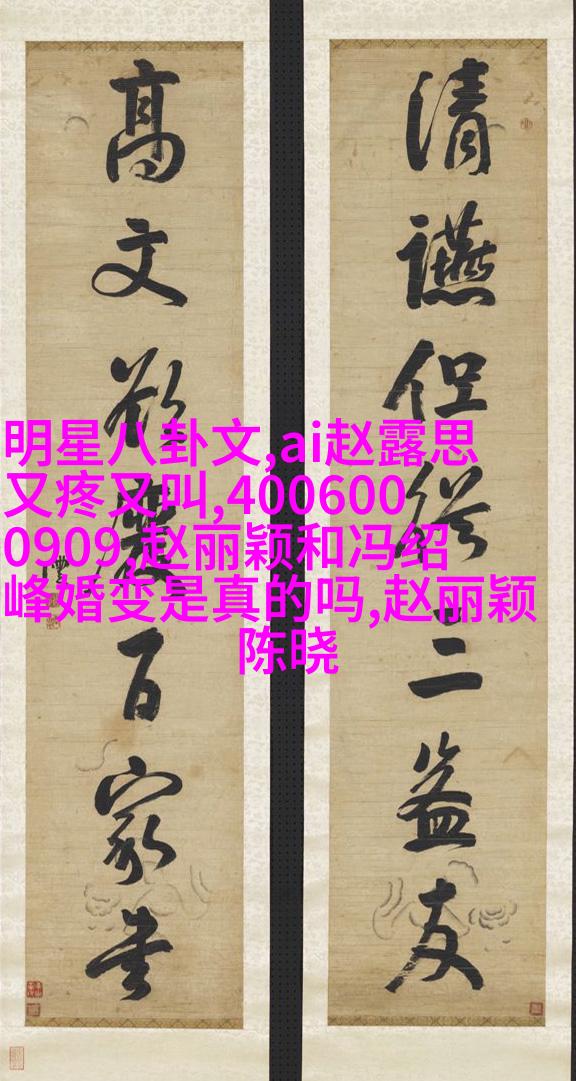 清讌但從三益友
高文欲百家書
明星八卦文,ai赵露思
又疼又叫,4006000
0909,赵丽颖和冯绍
峰婚变是真的吗,赵丽颖
陈晓